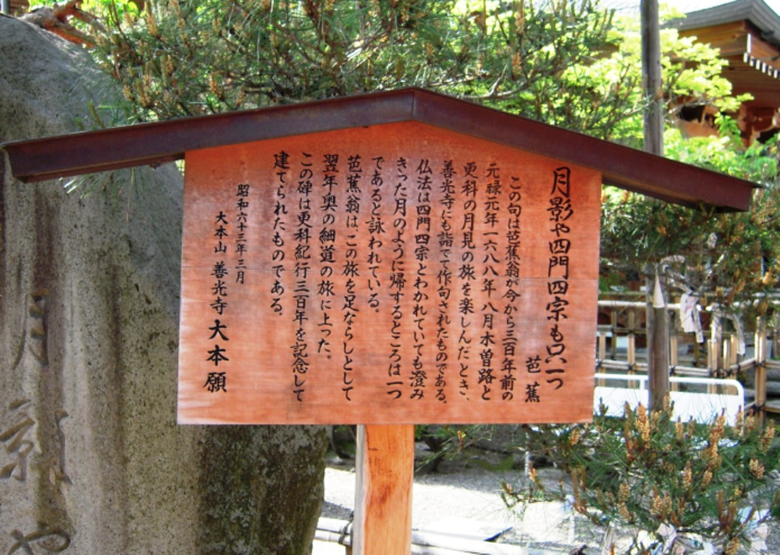 月影や四門四宗も只一つ
芭蕉
この句は芭蕉翁が今から三百年前の
元禄元年一六八八年八月木曽路と
更科の月見の旅を楽しんだとき、
善光寺にも詣で作句されたものである。
仏法は四門四宗とわかれていても澄み
きった月のように帰するところは一つ
であると詠われている。
芭蕉翁は、この旅を足ならしとして
翌年奥の細道の旅に上った。
この碑は更科紀行三百年を記念して
建てられたものである。
昭和六十三年三月
大本山 善光寺 大本願
月影や